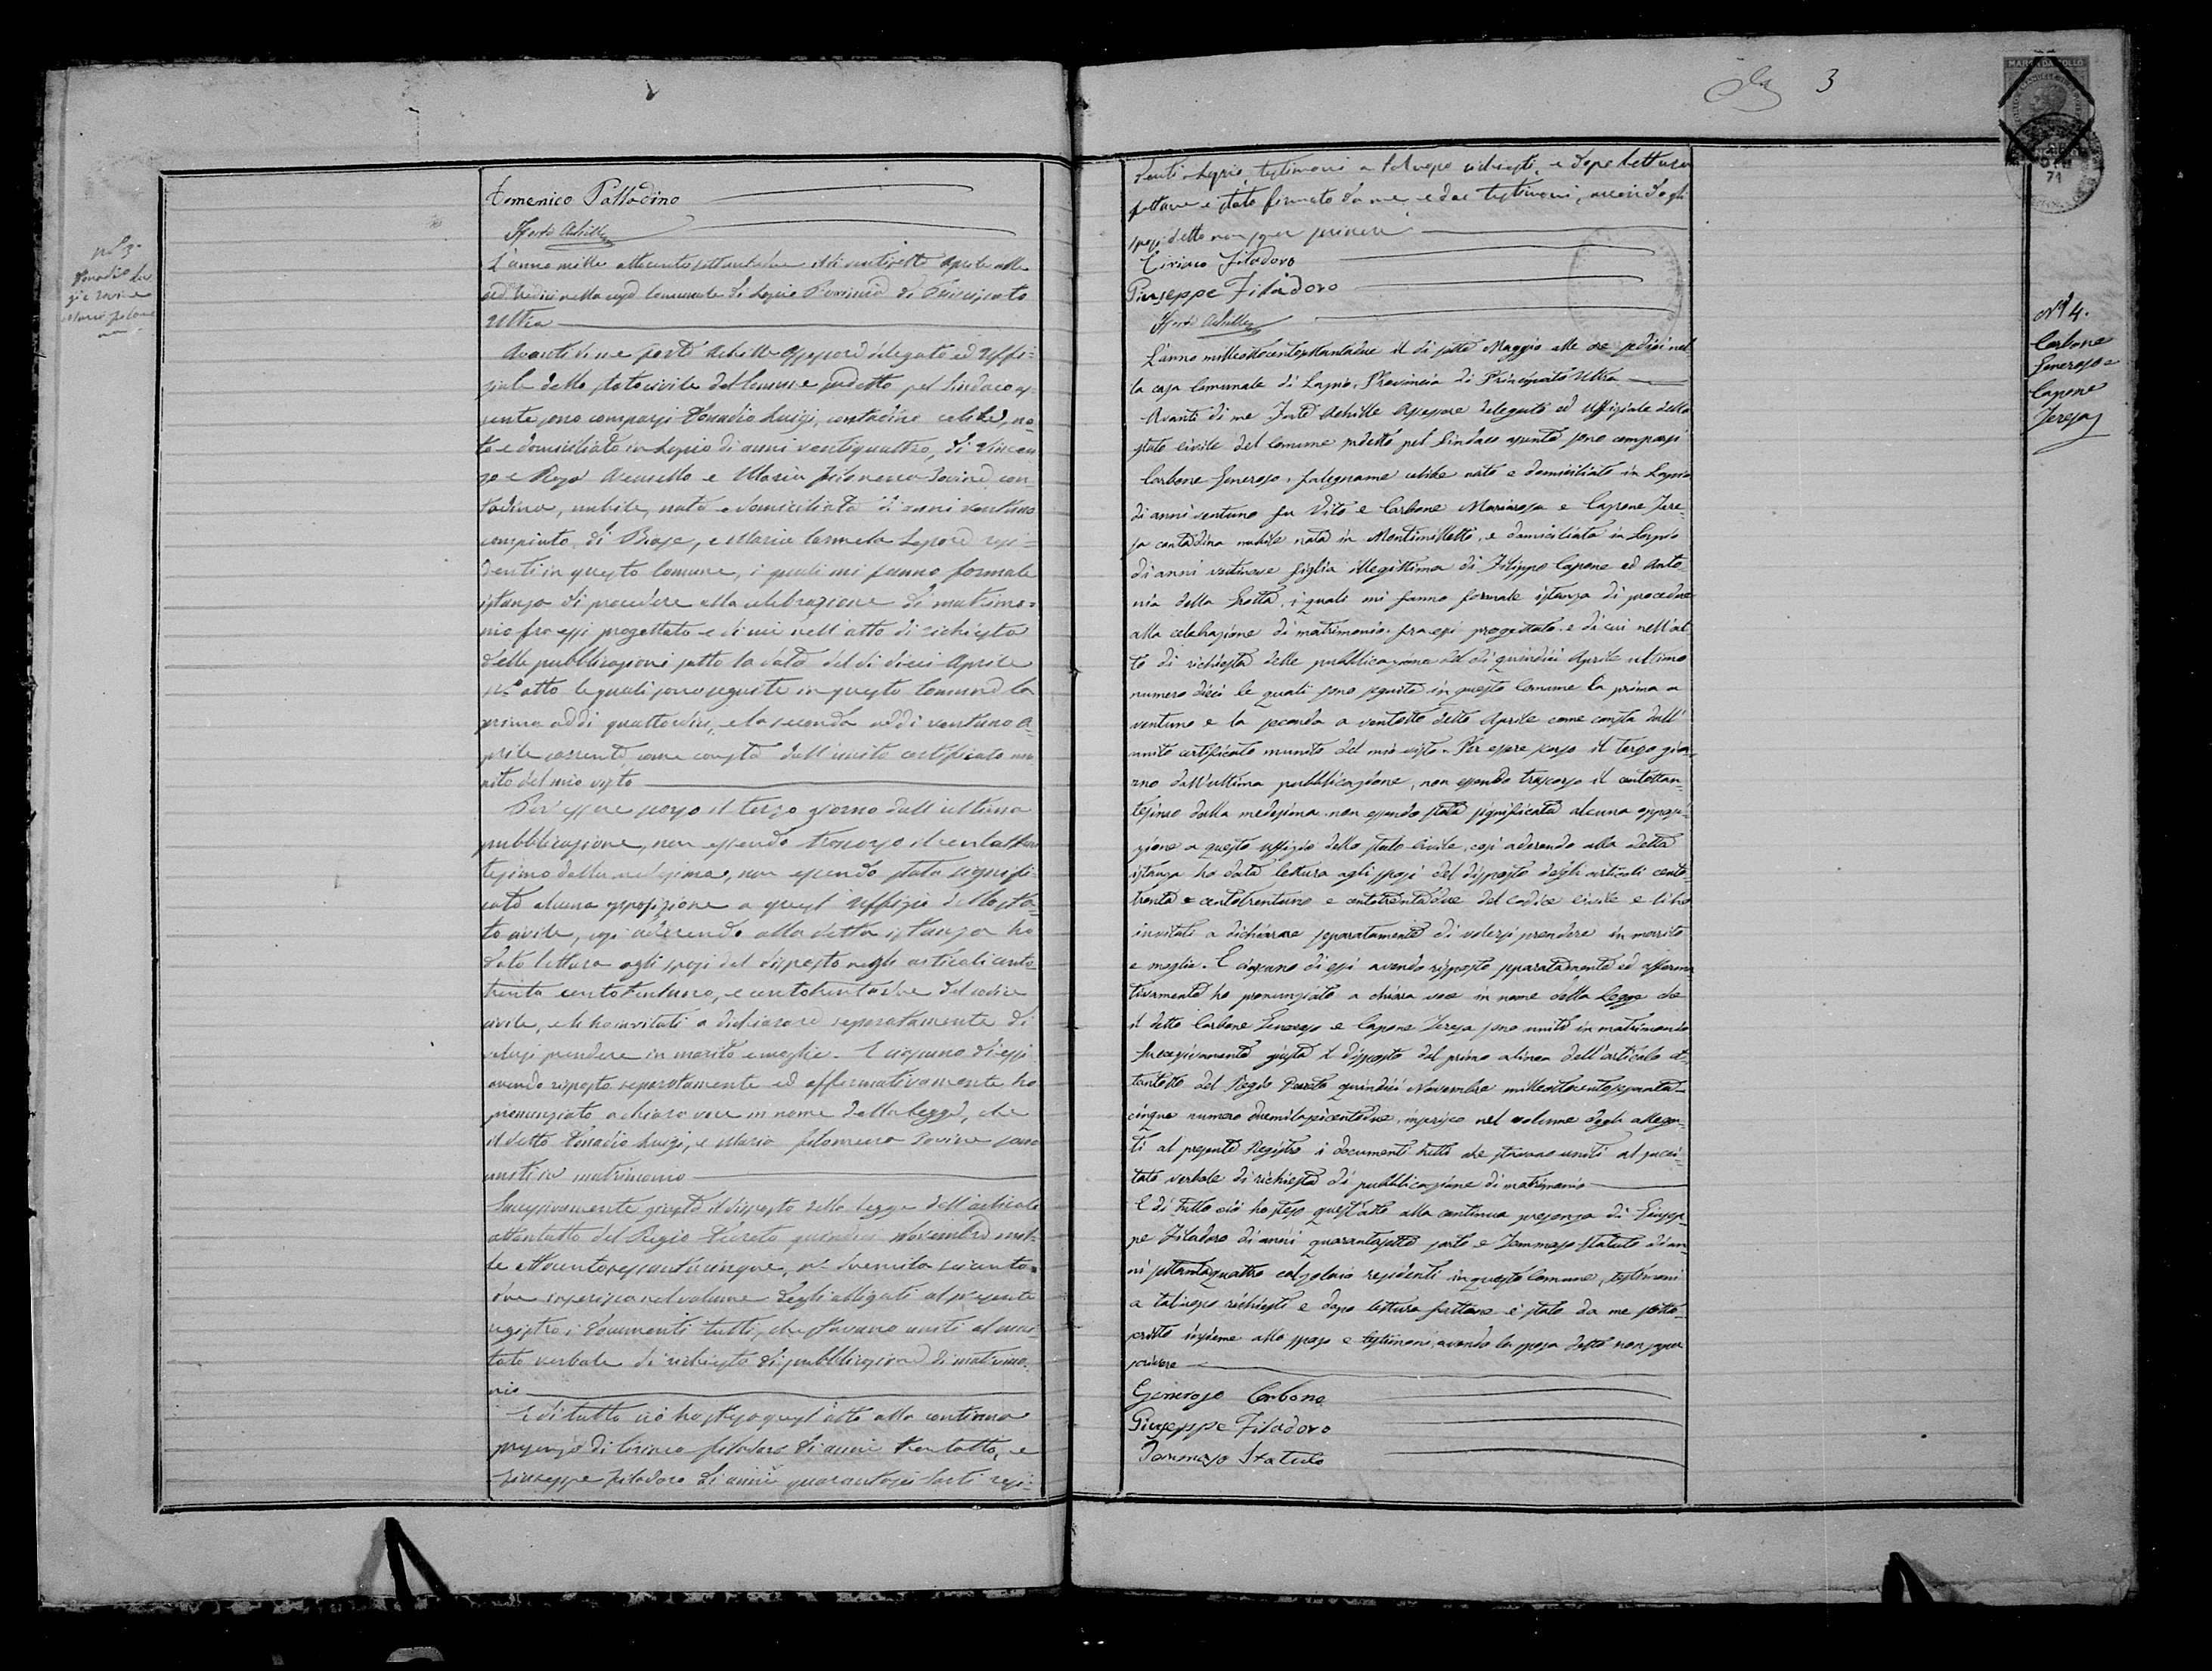 Domenico Palladino
Forte Achille
N° 3.
Donadio Lui
gi e Iovine
Maria Filome
na
L'anno mille ottocento settantadue il dì ventisette Aprile alle
ore tredici nella casa Comunale di Lapio Provincia di Principato
Ultra
Avanti di me Forte Achille Assessore delegato ed Uffi-
ziale dello Stato civile del Comune suddetto pel Sindaco as-
sente sono comparsi Donadio Luigi, contadino celibe, na-
to e domiciliato in Lapio di anni ventiquattro, di Vincen
zo e Rosa and Maria Filomena Iovine con-
tadina, nubile, nata e domiciliata di anni ventuno
compiuto di Biase, e Maria Carmela Lepore resi-
denti in questo Comune, i quali mi fanno formale
istanza di procedere alla celebrazione di matrimo-
nio fra essi progettato e di cui nell'atto di richiesta
delle pubblicazioni sotto la data del dì dieci Aprile
n.° otto le quali sono seguite in questo Comune la
prima addì quattordici, e la seconda addì ventuno A-
prile corrente come consta dall'unito certificato mu
nito del mio visto
Per essere scorso il terzo giorno dall'ultima
pubblicazione, non essendo trascorso il centottan
tesimo dalla medesima, non essendo stata signifi-
cata alcuna opposizione a quest'Uffizio dello sta-
to civile, così aderendo alla detta istanza ho
dato lettura agli sposi del disposto negli articoli cento
trenta centotrentuno, e centotrentadue del codice
civile, e li ho invitati a dichiarare separatamente di
volersi prendere in marito e moglie. E ciascuno di essi
avendo risposto separatamente ed affermativamente ho
pronunziato a chiara voce in nome della Legge, che
il detto Donadio Luigi, e Maria Filomena Iovine sono
uniti in matrimonio
Successivamente giusta il disposto della legge dell'articolo
ottantotto del Regio Decreto quindici Novembre mil-
le ottocentosessantacinque, n° duemila seicento
due inserisco nel volume degli allegati al presente
registro i documenti tutti, che stavano uniti al succi-
tato verbale di richiesta di pubblicazione di matrimo-
nio
E di tutto ciò ho steso quest'atto alla continua
presenza di Ciriaco Filadoro di anni trentotto, e
Giuseppe Filadoro di anni quarantasei sarti resi-
3
MARCA DA BOLLO
71
denti a Lapio, testimoni a tal'uopo richiesti, e dopo lettura
fattane è stato firmato da me, e dai testimoni, avendo gli
sposi detto non saper scrivere
Ciriaco Filadoro
Giuseppe Filadoro
Forte Achille
N° 4.
Carbone
Generoso e
Capone
Teresa
L'anno milleottocentosettantadue il dì sette Maggio alle ore sedici nel
la casa Comunale di Lapio, Provincia di Principato Ultra
Avanti di me Forte Achille Assessore delegato ed Uffiziale dello
stato civile del Comune suddetto pel Sindaco assente sono comparsi
Carbone Generoso, falegname celibe nato e domiciliato in Lapio
di anni ventuno fu Vito e Carbone Mariarosa e Capone Tere-
sa contadina nubile nata in Montemiletto, e domiciliata in Lapio
di anni ventinove figlia illegittima di Filippo Capone ed Anto-
nia della Grotta, i quali mi fanno formale istanza di procedere
alla celebrazione di matrimonio fra essi progettato e di cui nell'at
to di richiesta delle pubblicazione del dì quindici Aprile ultimo
numero dieci le quali sono seguite in questo Comune la prima a
ventuno e la seconda a ventotto detto Aprile come consta dall'
unito certificato munito del mio visto. Per essere scorso il terzo gior-
no dall'ultima pubblicazione, non essendo trascorso il centottan-
tesimo dalla medesima non essendo stata significata alcuna opposi-
zione a questo Uffizio dello stato Civile, così aderendo alla detta
istanza ho data lettura agli sposi del disposto dagli articoli cento-
trenta e centotrentuno e centotrentadue del codice civile e li ho
invitati a dichiarare separatamente di volersi prendere in marito
e moglie. E ciascuno di essi avendo risposto separatamente ed afferma
tivamente ho pronunziato a chiara voce in nome della Legge che
il detto Carbone Generoso e Capone Teresa sono uniti in matrimonio
Successivamente giusta il disposto del primo alinea dell'articolo ot-
tantotto del Regio Decreto quindici Novembre milleottocentosessanta-
cinque numero duemilaseicentodue, inserisco nel volume degli allega-
ti al presente Registro i documenti tutti che stavano uniti al succi-
tato verbale di richiesta di pubblicazione di matrimonio
E di tutto ciò ho steso quest'atto alla continua presenza di Giusep-
pe Filadoro di anni quarantasette sarto e Tommaso Statuto di an-
ni settantaquattro calzolaio residenti in questo Comune, testimoni
a tal'uopo richiesti e dopo lettura fattane è stato da me sotto-
scritto insieme allo sposo e testimoni, avendo la sposa detto non saper
scrivere
Generoso Carbone
Giuseppe Filadoro
Tommaso Statuto